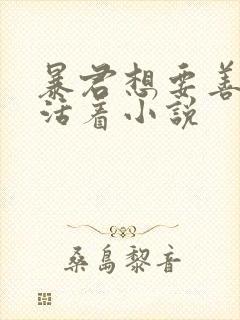 暴君想要善
活着小說
桑島黎音